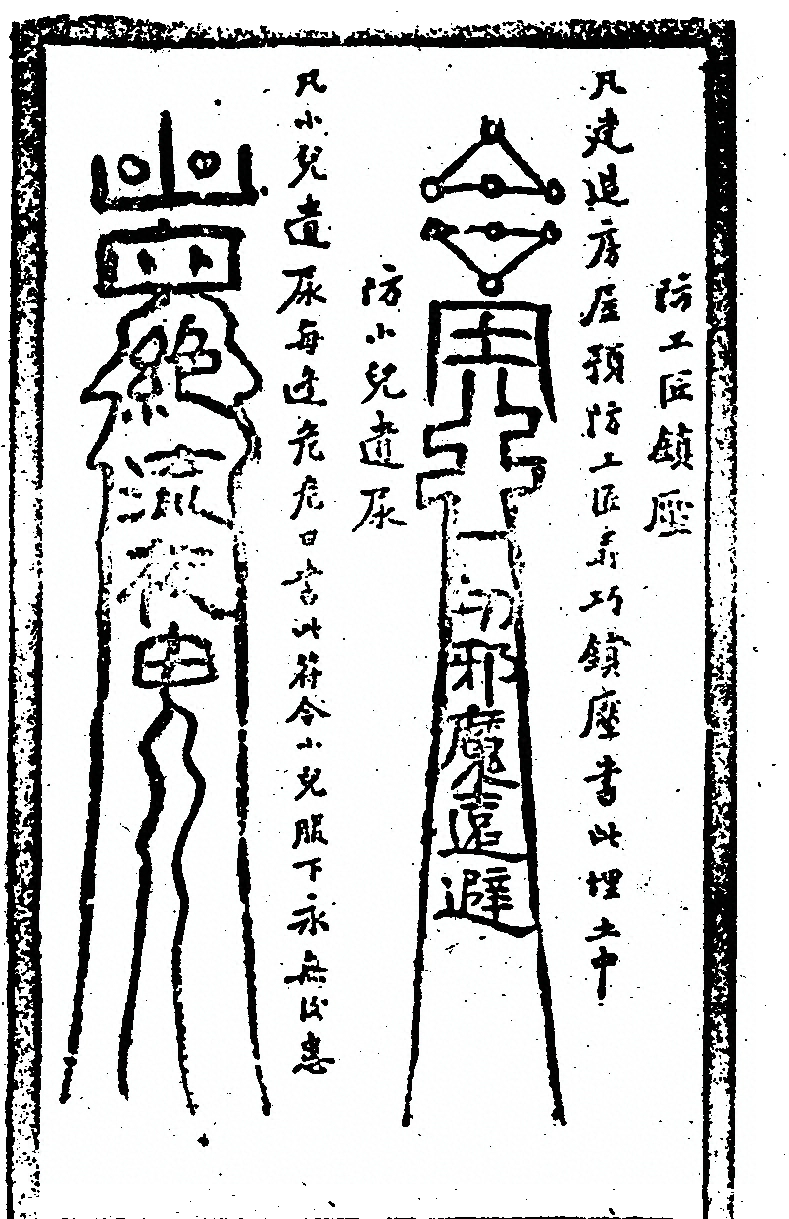 防工匠鎮壓
凡建造房屋預防工匠弄巧鎮壓書此埋土中
一切邪魔遠避
防小兒遺尿
凡小兒遺尿每逢危危日書此符令小兒服下永無後患
絕流夜